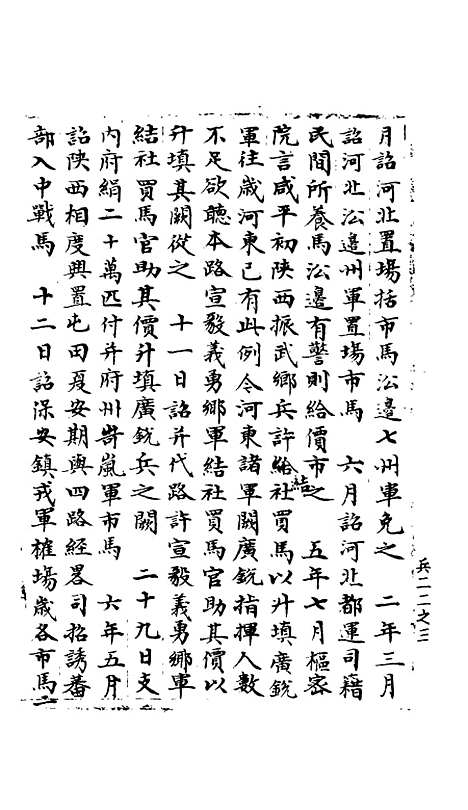 月詔河北置場括市馬沿邊七州軍免之　二年三月
詔河北沿邊州軍置場市馬　六月詔河北都運司籍
民間所養馬沿邊有警則給價市之　五年七月樞密
院言咸平初陝西振武鄉兵許給結社買馬以升填廣銳
軍往歲河東已有此例令河東諸軍闕廣銳指揮人數
不足欲聽本路宣毅義勇鄉軍結社買馬官助其價以
升填其闕從之　十一日詔并代路許宣毅義勇鄉軍
結社買馬官助其價升填廣銳兵之闕　二十九日支
內府絹二十萬匹付并府州岢嵐軍市馬　六年五月
詔陝西相度興置屯田夏安期與四路經畧司招誘蕃
部入中戰馬　十二日詔保安鎮戎軍榷場歲各市馬二
兵二二之三